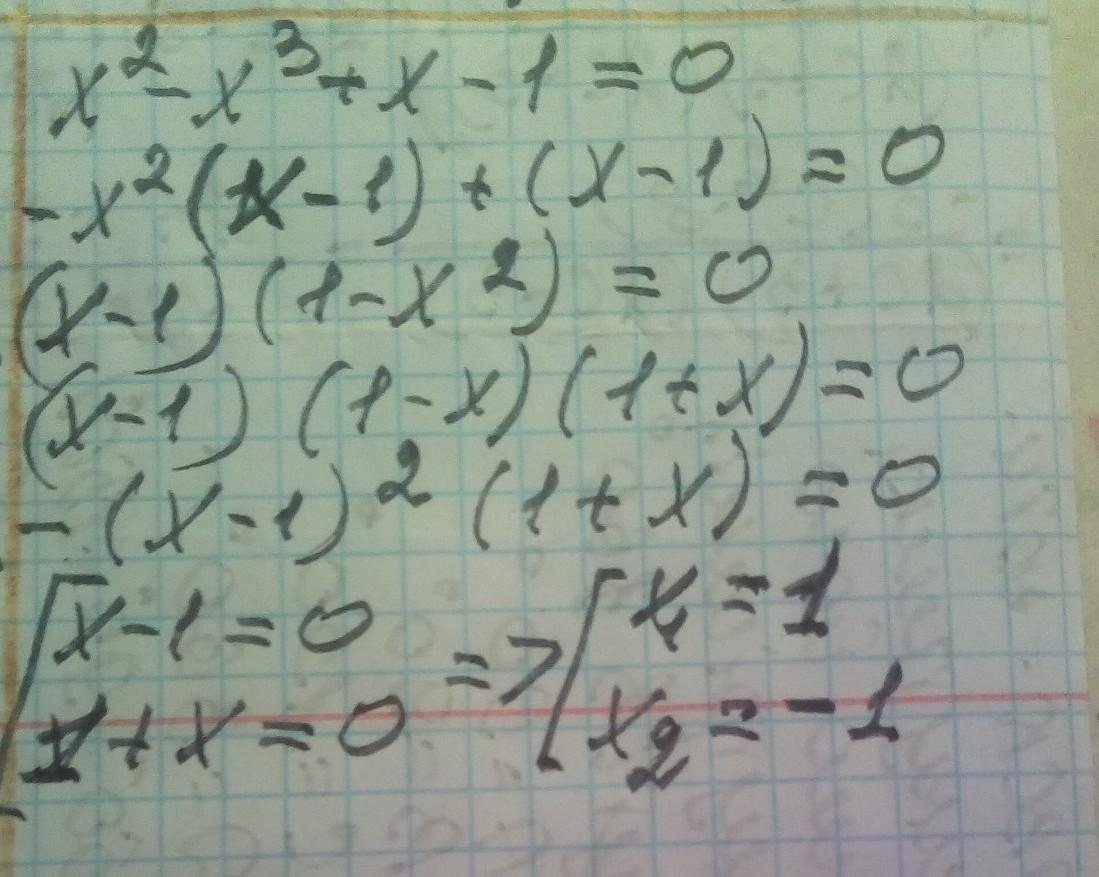 x² - x³ + x - 1 = 0
- x² (x - 1) + (x - 1) = 0
(x - 1) (1 - x²) = 0
(x - 1) (1 - x) (1 + x) = 0
- (x - 1)² (1 + x) = 0
[ x - 1 = 0 => [ x₁ = 1
1 + x = 0 x₂ = - 1